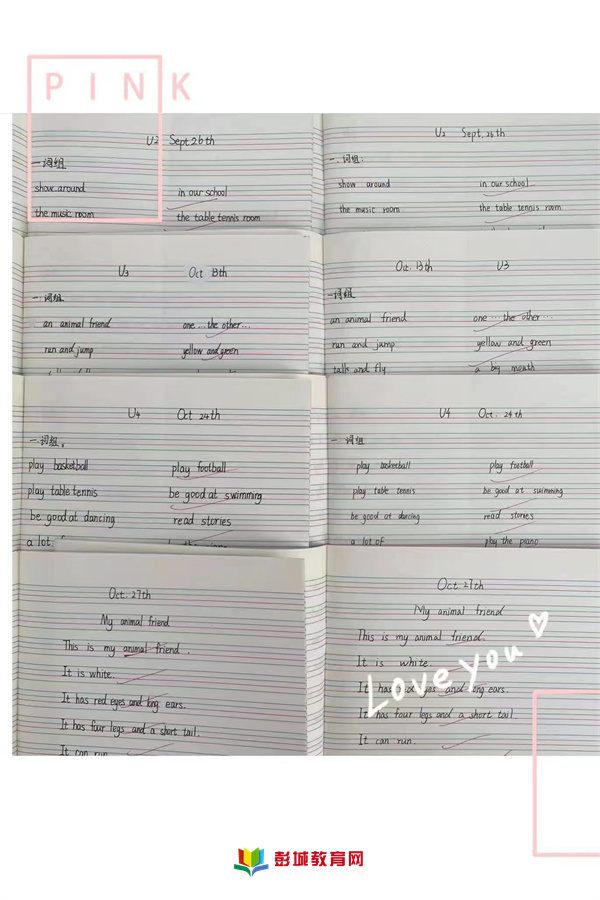 PINK
U2 Sept.26th
一.词组
show around in our school
the music room the table tennis room
U2 Sept.26th
一.词组:
show around in our school
the music room the table tennis room
U3 Oct 13th
一.词组
an animal friend one...the other...
run and jump yellow and green
Oct.13th U3
一词组
an animal friend one...the other...
run and jump yellow and green
talk and fly a big mouth
U4 Oct 24th
一.词组。
play basketball play football
play table tennis be good at swimming
be good at dancing read stories
a lot
U4 Oct.24th
一词组
play basketball play football
play table tennis be good at swimming
be good at dancing read stories
a lot of play the piano
Oct.27th
My animal friend
This is my animal friend.
It is white.
It has red eyes and long ears.
It has four legs and a short tail.
It can run.
Oct.27th
My animal friend
This is my animal friend.
It is white.
It has eyes and long ears.
It has four legs and a short tail.
It can run.
Love you
彭城教育网